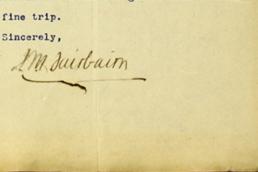 fine trip.
Sincerely,
J M Fairbairn